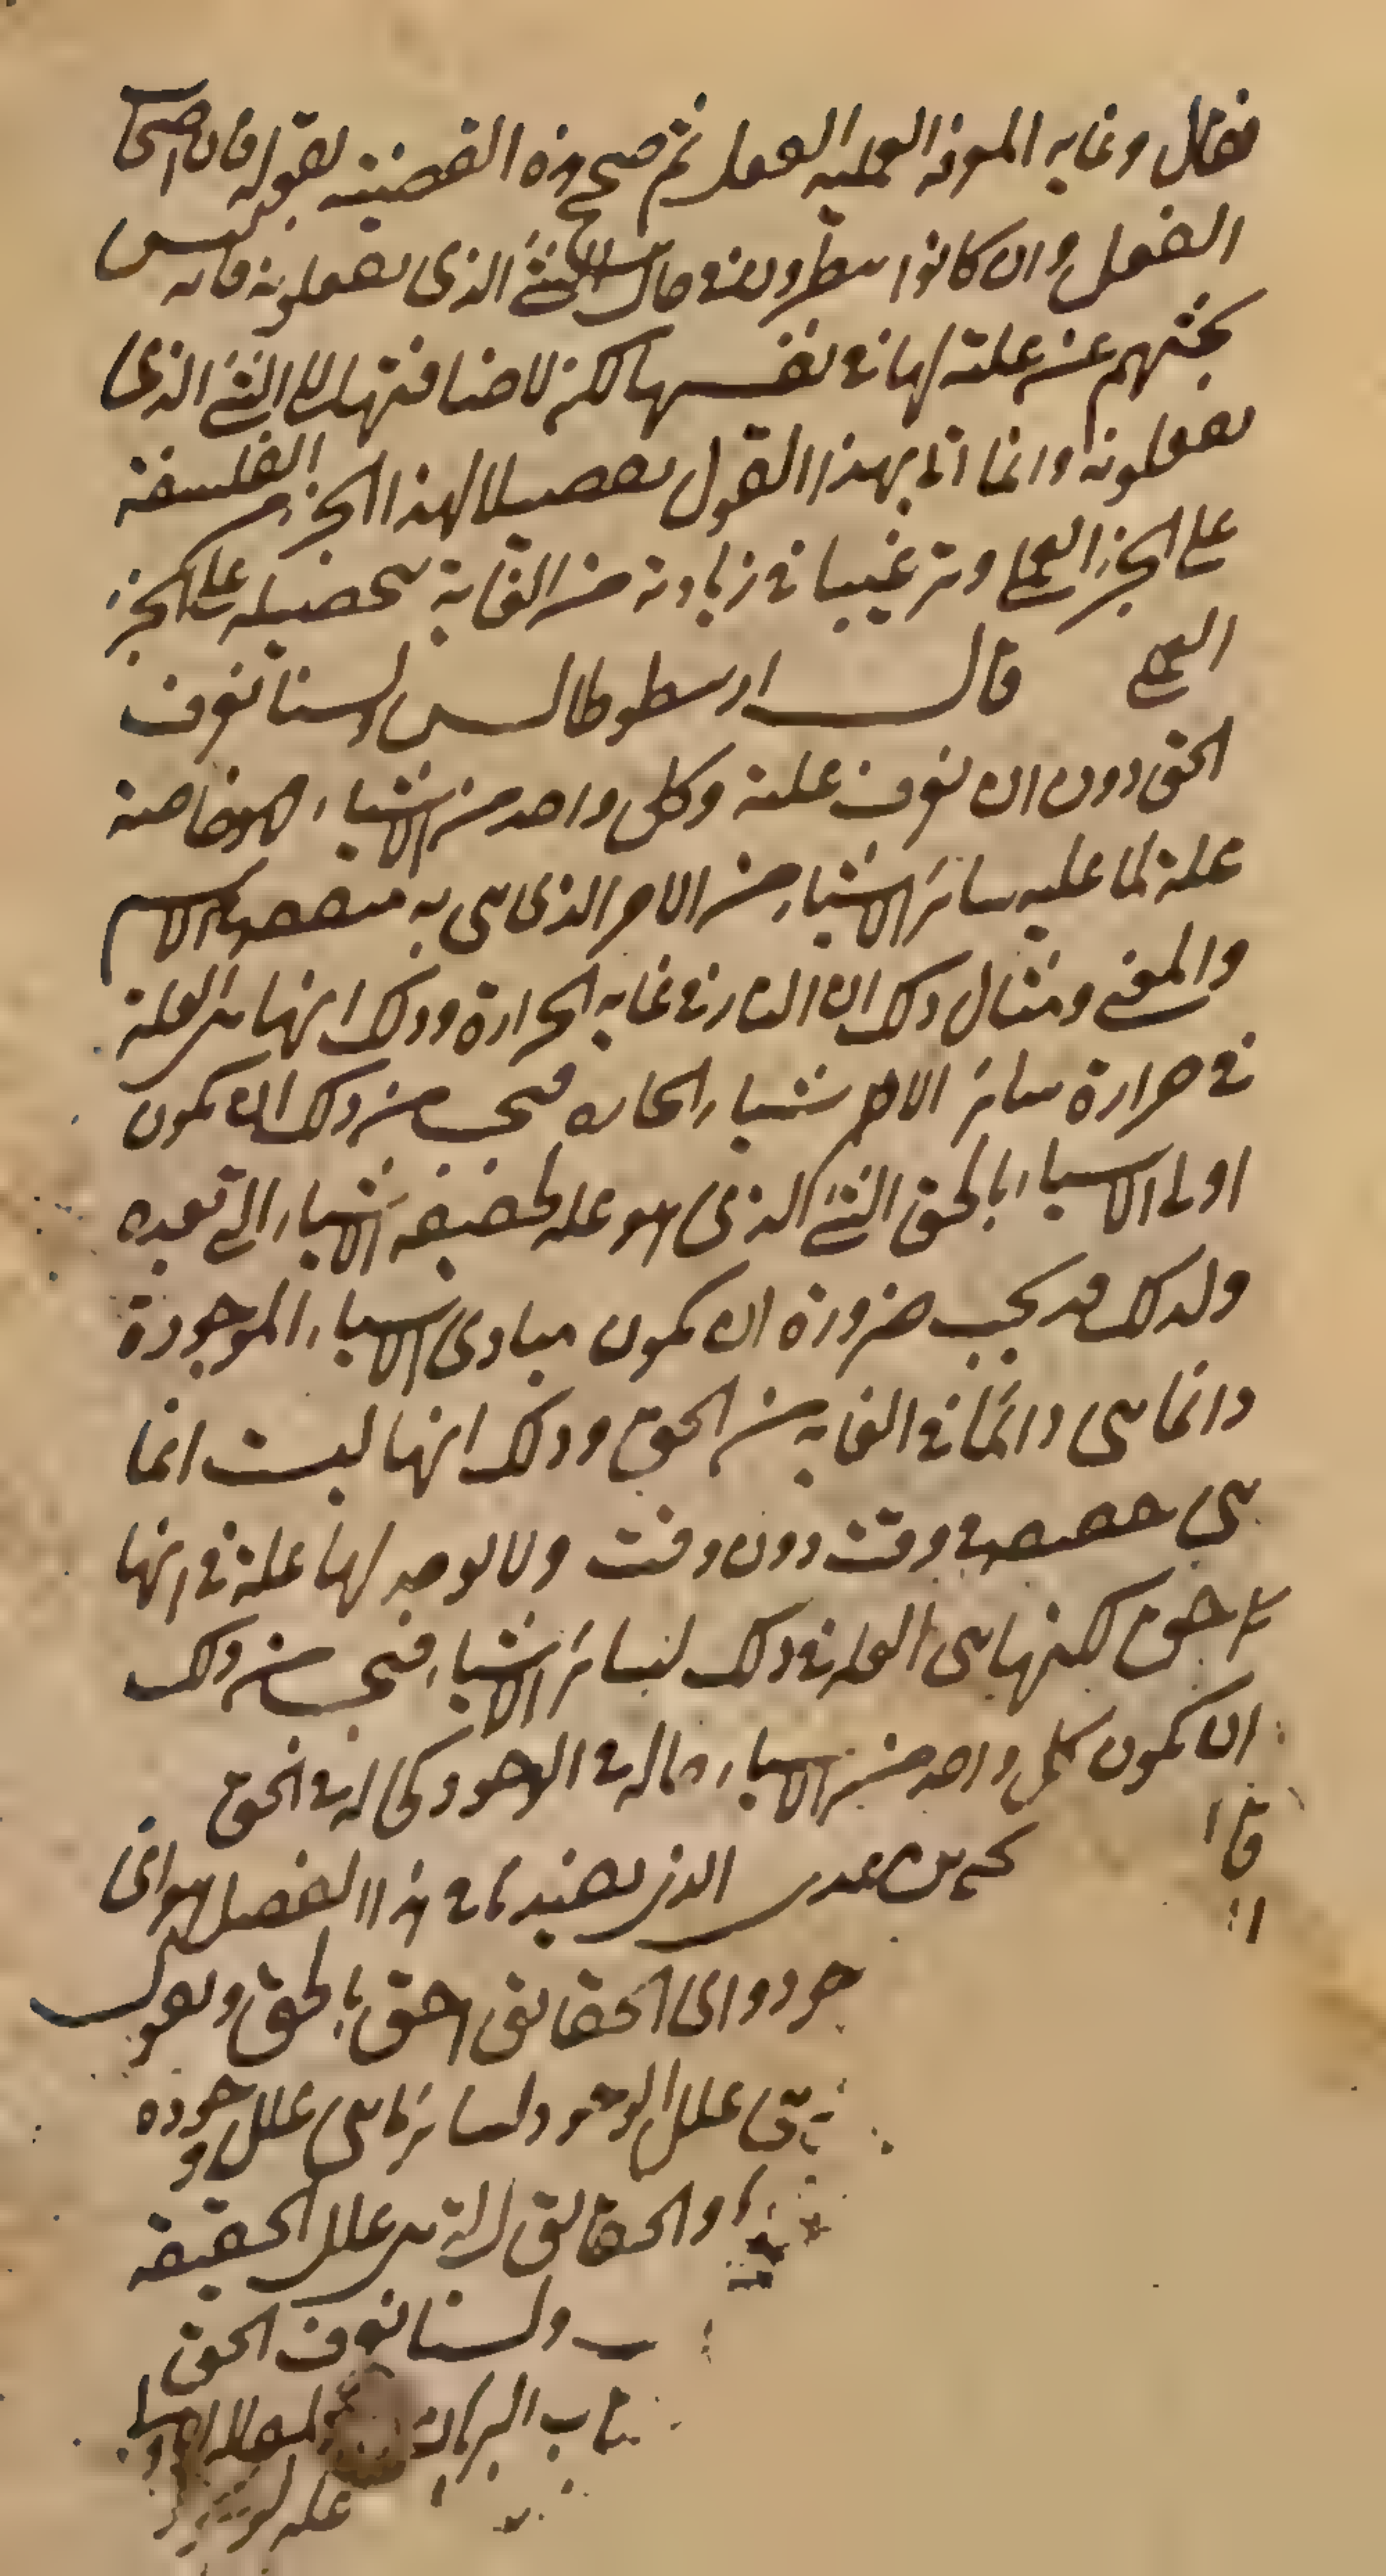 فقال وغاية المعرفة العملية الفعل ثم صحح هذه القضية بقوله فان اصحاب
الفعل وان كانوا ينظرون في حال الشئ الذي يفعلونه فانه ليس
بحثهم عن علته لها في نفسها لكن لاضافتها الى الشئ الذي
يفعلونه وانما اتى بهذا القول تفضيلا لهذا الجزء من الفلسفة
على الجزء العملي وترغيبا في زيادة من العناية بتحصيله على الجزء
العملي قال ارسطوطالس ولسنا نعرف
الحق دون ان نعرف علته وكل واحد من الاشياء فهو خاصة
علة لما عليه سائر الاشياء من الامر الذي هي به متفقة في الاسم
والمعنى ومثال ذلك ان النار في غاية الحرارة وذلك انها هي العلة
في حرارة سائر الاشياء الحارة فيجب من ذلك ان يكون
اولى الاشياء بالحق الشئ الذي هو علة لحقيقة الاشياء التي بعده
ولذلك قد يجب ضرورة ان يكون مبادى الاشياء الموجودة
دائما هي دائما في الغاية من الحق وذلك انها ليست انما
هي حقيقية في وقت دون وقت ولا يوجد لها علة في انها
حق لكنها هي العلة في ذلك لسائر الاشياء فيجب من ذلك
ان يكون كل واحد من الاشياء حاله في الوجود كحاله في الحق
قال يحيى بن عدي الذي يفيدنا في هذا الفصل هو اى
جود واى الحقائق احق بالحق ويقول
هي علل الوجود لسائر ما هي علل وجوده
والحقائق التي هي علل الحقيقة
ولسنا نعرف الحق
البرهان
علة